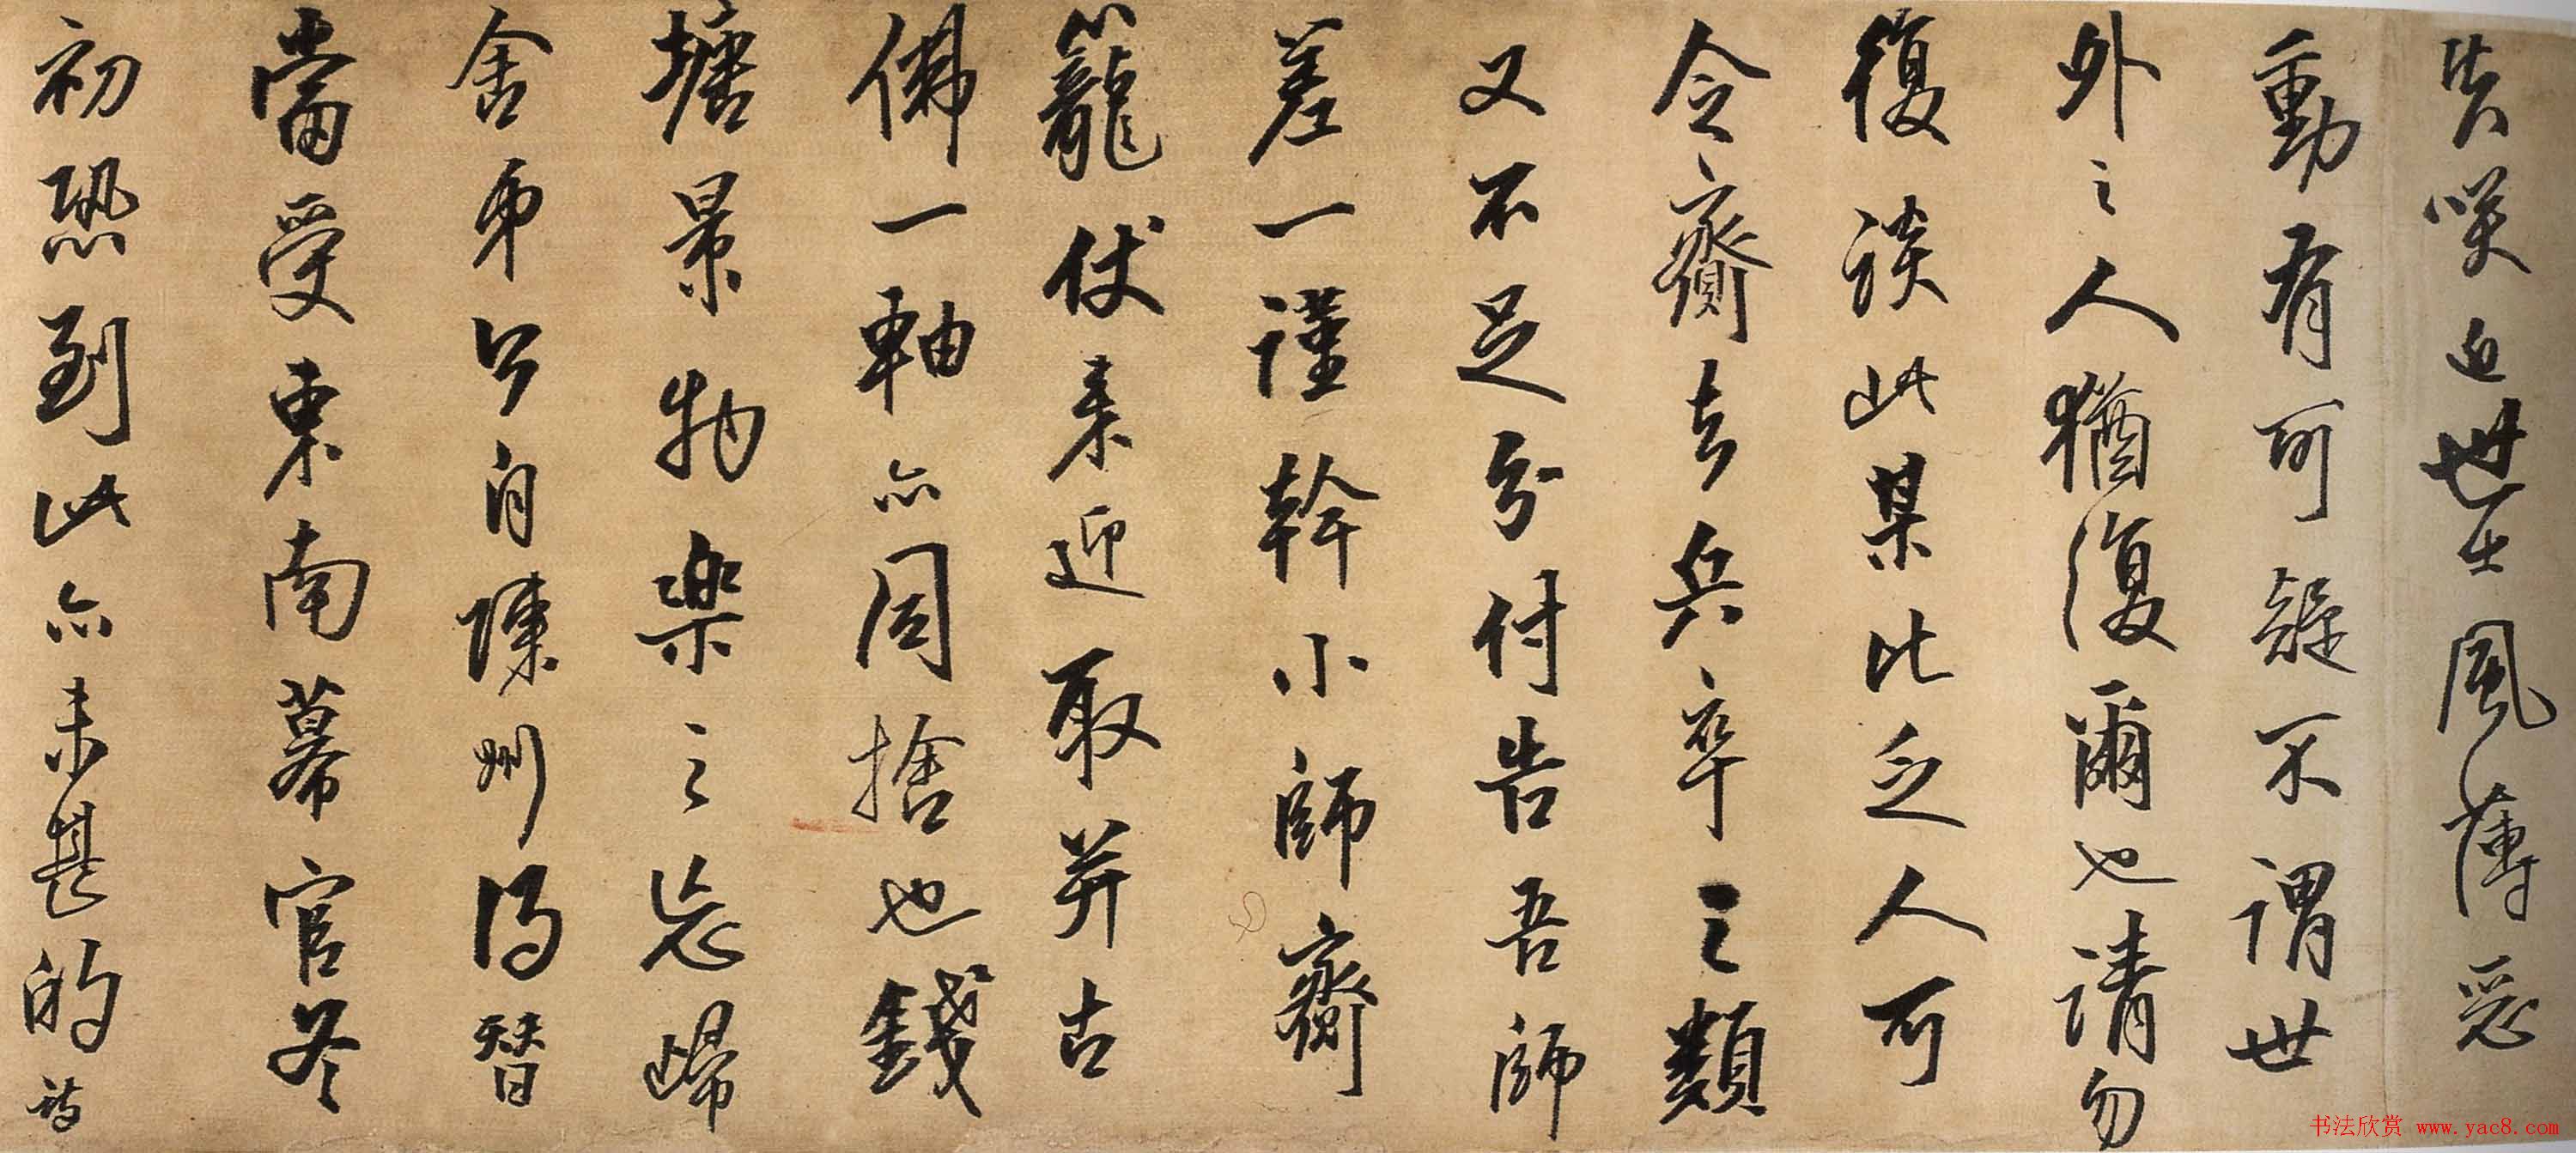 失咲近世士風薄惡
動有可疑不謂世
外之人猶復爾也請勿
復談此某比乏人可
令齎去兵卒之類
又不足分付告吾師
差一謹幹小師齎
籠仗來迎取并古
佛一軸亦同捨也錢
塘景物樂之忘歸
舍弟今自陳州得替
當受東南幕官冬
初恐到此亦未甚的詩
书法欣赏 www.yac8.com